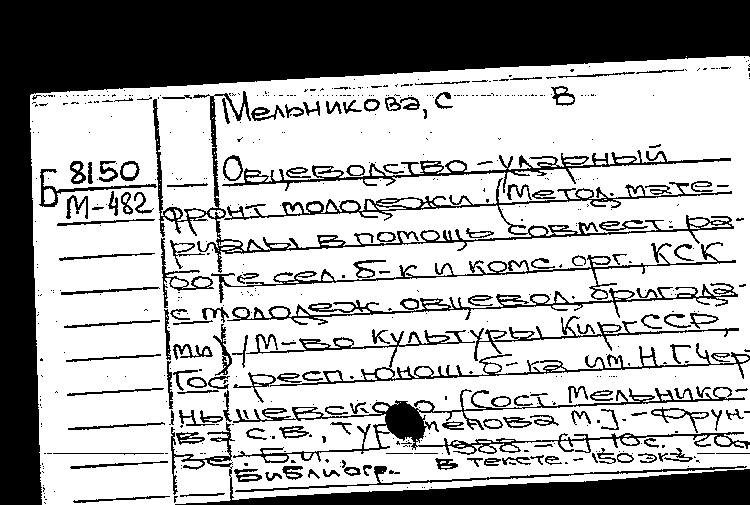 Мельникова, С В
Б 8150
М-482
Овцеводство - ударный
фронт молодежи : (Метод. мате-
риалы в помощь совмест. ра-
боте сел. б-к и комс. орг., КСК
с молодеж. овцевод. бригада-
ми) / М-во культуры КиргССР,
Гос. респ. юнош. б-ка им. Н.Г. Чер
нышевского; [Сост. Мельнико-
ва С.В., М.]. - Фрун-
зе : Б.и. 1988. - 10с.
Библиогр. в тексте. - 150 экз.